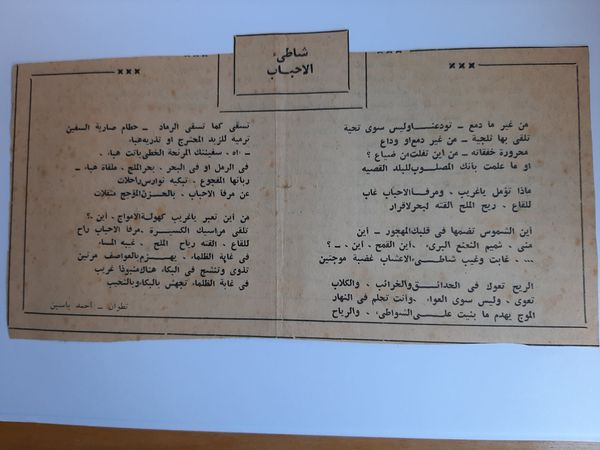 شاطىء
الاحباب
من غير ما دمع ـ تودعنا وليس سوى تحية
تلقى بها ثلجية ـ من غير دمع او وداع
محرورة خفقاته ـ من اين تفلت من ضياع ؟
او ما علمت بانك المصلوب للبلد القصيه
ماذا تؤمل ياغريب ، ومرفأ الاحباب غاب
للقاع ، ريح الملح القته لبحر لاقرار
اين الشموس تضمها فى قلبك المهجور ـ اين
منى ، شميم النعنع البرى ، اين القمح ، اين ، ـ ؟
... ، غابت وغيب شاطىء الاعشاب غضبة موجتين
الريح تعوك فى الحدائق والخرائب ، والكلاب
تعوى ، وليس سوى العواء ، وأنت تحلم فى النهار
الموج يهدم ما بنيت على الشواطىء ، والرياح
تسفى كما تسفى الرماد ـ حطام صارية السفين
ترميه للزبد المحترج او تذريه هباء
ـ اه ، سفينتك المرنحة الخطى باتت هباء ،
فى الرمل او فى البحر ، بحر الملح ، ملقاة هباء ـ
ربانها المفجوع ، تبكيه نوارس راحلات
عن مرفأ الاحباب ، بالحزن المؤجج مثقلات
من أين تعبر ياغريب كهولة الامواج ، أين ،؟
تلقى مراسيك الكسيرة ، مرفأ الاحباب راح
للقاع ، القته رياح الملح ، غيبه المساء
فى غابة الظلماء ، يهزم بالعواصف مرتين
تلوى وتنشج فى البكاء هناك منبوذا غريب
فى غابة الظلماء تجهش بالبكاء وبالنحيب
تطوان ـ أحمد ياسين